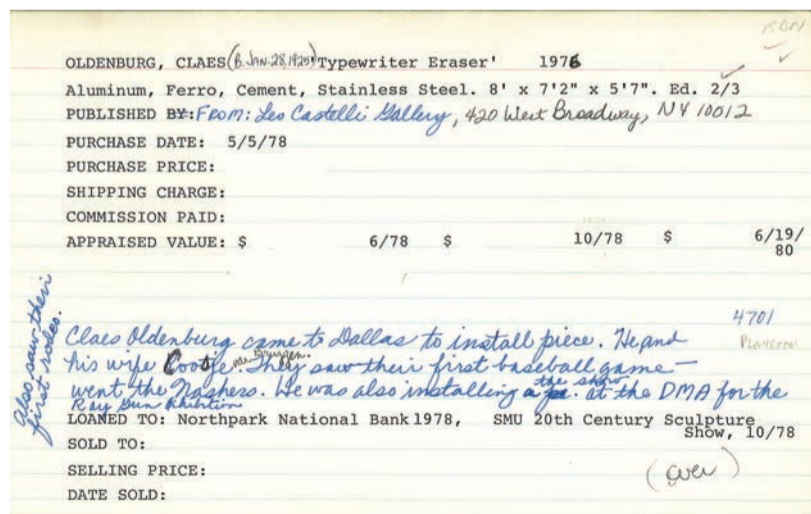 KDN
OLDENBURG, CLAES (B. JAN. 28, 1929) 'Typewriter Eraser' 1976
Aluminum, Ferro, Cement, Stainless Steel. 8' x 7'2" x 5'7". Ed. 2/3
PUBLISHED BY: FROM: Leo Castelli Gallery, 420 West Broadway, NY 10012
PURCHASE DATE: 5/5/78
PURCHASE PRICE:
SHIPPING CHARGE:
COMMISSION PAID:
APPRAISED VALUE: $ 6/78 $ 10/78 $ 6/19/
80
4701
also saw their
first rodeo.
Claes Oldenburg came to Dallas to install piece. He and
his wife Coosje van Bruggen. They saw their first baseball game –
went the Nashers. He was also installing the show at the DMA for the
Ray Gun Exhibition
LOANED TO: Northpark National Bank 1978, SMU 20th Century Sculpture
Show, 10/78
SOLD TO:
SELLING PRICE:
(over)
DATE SOLD: